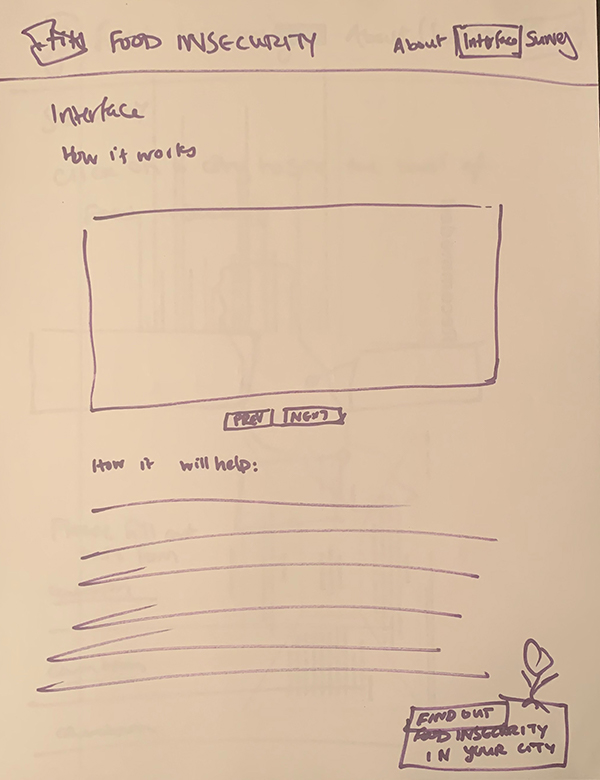 FOOD INSECURITY
About Interface Survey
Interface
How it works
PREV NEXT
How it will help:
FIND OUT
FOOD INSECURITY
IN YOUR CITY